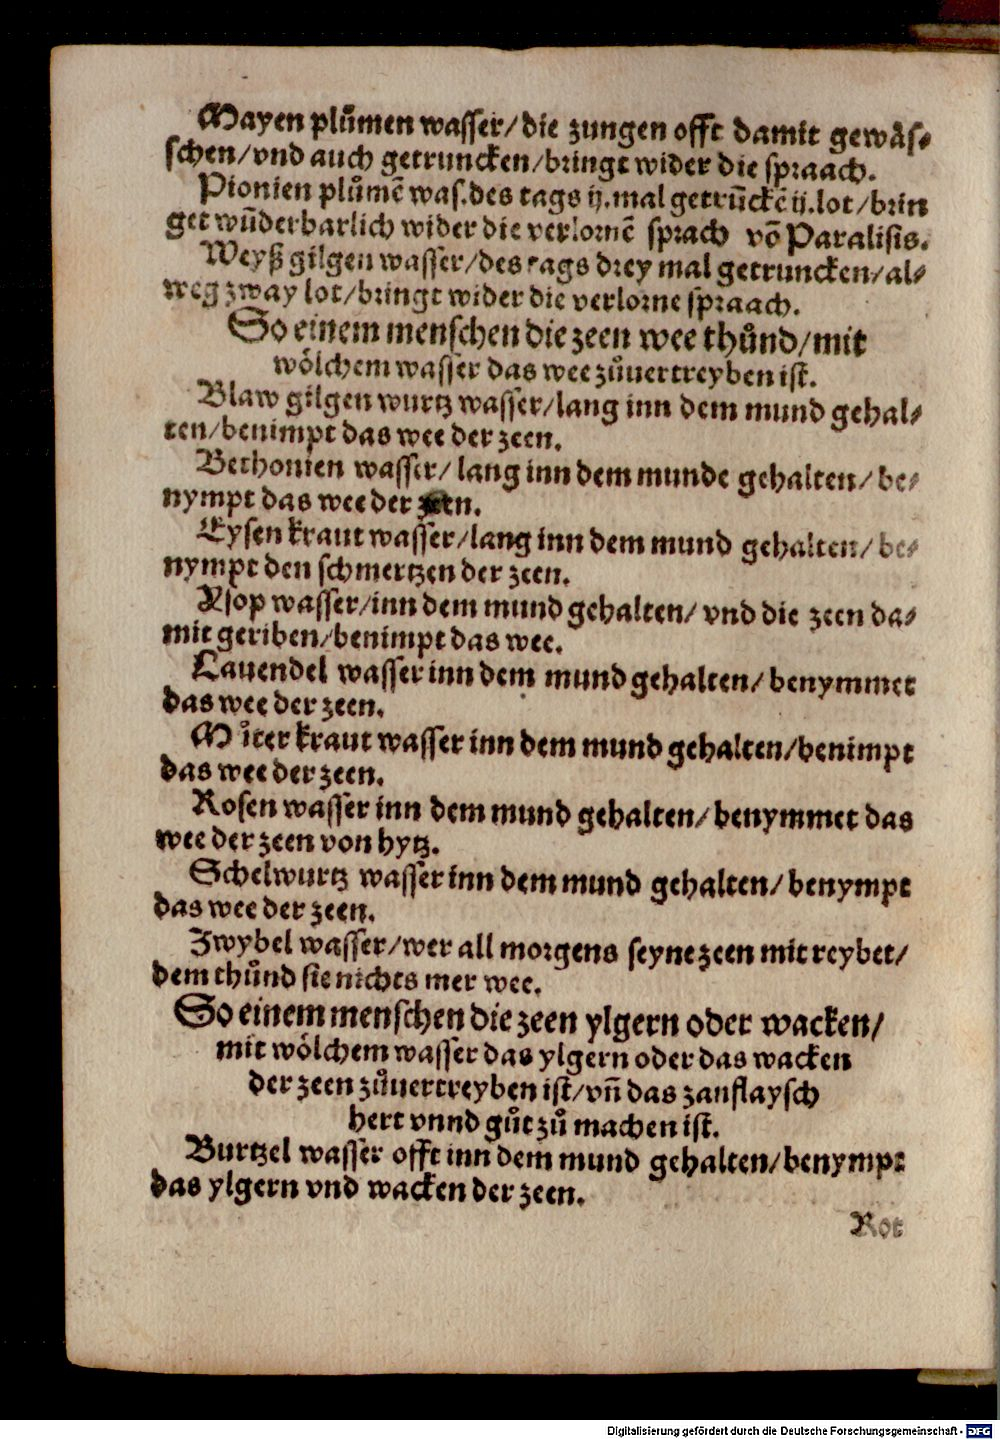 Mayen plůmen wasser/die zungen offt damit gewäs⸗
schen/vnd auch getruncken/bringt wider die spraach.
Pionien plůmē was.des tags ij.mal getrūckē ij.lot/brin
get wūderbarlich wider die verlornē sprach vō Paralisis.
Weyß gilgen wasser/des tags drey mal getruncken/al⸗
weg zway lot/bringt wider die verlorne spraach.
So einem menschen die zeen wee thůnd/mit
wölchem wasser das wee zůuertreyben ist.
Blaw gilgen wurtz wasser/lang inn dem mund gehal⸗
ten/benimpt das wee der zeen.
Bethonien wasser/lang inn dem munde gehalten/be⸗
nympt das wee der zeen.
Eysen kraut wasser/lang inn dem mund gehalten/be⸗
nympt den schmertzen der zeen.
Ysop wasser/inn dem mund gehalten/vnd die zeen da⸗
mit geriben/benimpt das wee.
Lauendel wasser inn dem mund gehalten/benymmet
das wee der zeen.
Můter kraut wasser inn dem mund gehalten/benimpt
das wee der zeen.
Rosen wasser inn dem mund gehalten/benymmet das
wee der zeen von hytz.
Schelwurtz wasser inn dem mund gehalten/benympt
das wee der zeen.
Zwybel wasser/wer all morgens seyne zeen mit reybet/
dem thůnd sie nichts mer wee.
So einem menschen die zeen ylgern oder wacken/
mit wölchem wasser das ylgern oder das wacken
der zeen zůuertreyben ist/vñ das zanflaysch
hert vnnd gůt zů machen ist.
Burtzel wasser offt inn dem mund gehalten/benympt
das ylgern vnd wacken der zeen.
Rot
Digitalisierung gefördert durch die Deutsche Forschungsgemeinschaft - DFG